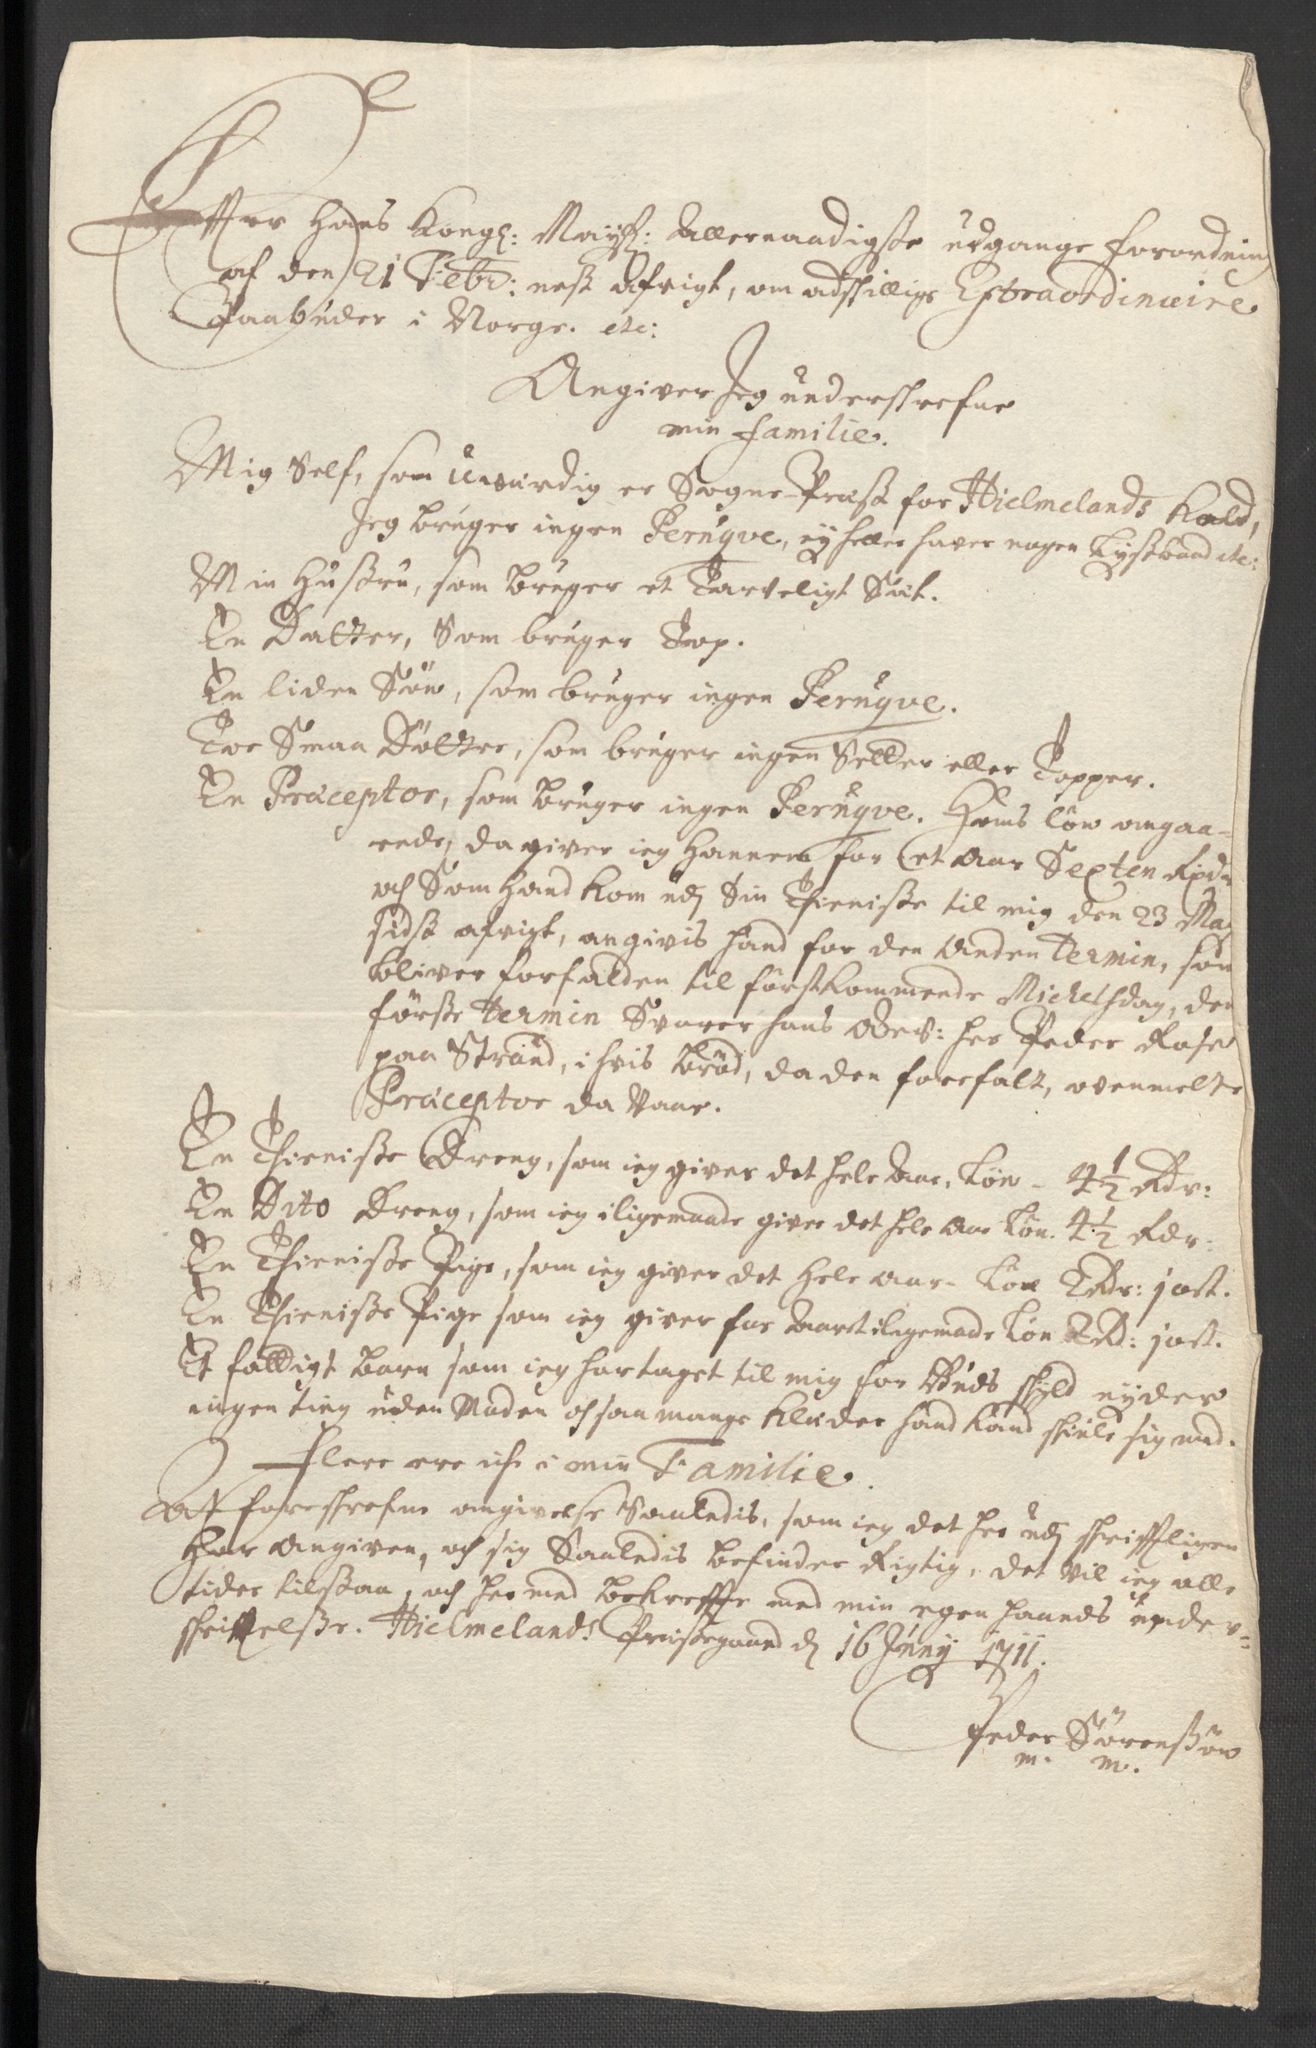 Effter Hans Kongl: Mayst: Allernaadigste udgangne forordning
af den 21 Febr: nest Afvigt, om adskillige Extraordinaire
Paabuder i Norge. etc:
Angiver Jeg underskrefne
min familie.
Mig Self, som uwürdig er Sogne-Præst for Hielmelands Kald,
Jeg bruger ingen Peruqve, ey heller haver nogen Lystvaand etc:
Min Hustru, som bruger et Tarveligt Sæt.
En Datter, Som bruger Top.
En liden Søn, som bruger ingen Peruqve.
Toe Smaa Døttre, som bruger ingen Setter eller Topper.
En Præceptor, som bruger ingen Peruqve. Hans løn angaa-
ende, da giver ieg hannem for et Aar Sexten Rixdr
och Som hand kom udj Sin Thieniste til mig den 23 Maj
sidst afvigt, angivis hand for den Anden Termin, som
bliver forfalden til førstkommende Michelsdag, den
første Termin Svarer hans Præs: her Peder Rose
paa Strand, i hvis brød, da den forefalt, ovenmelte
Præceptor da Vaar.
En Thieniste Dreng, som ieg giver det hele Aar, Løn - 4½ Rdr:
En Dito Dreng, som ieg iligemaade giver det hele Aar Løn. 4½ Rdr:
En Thieniste Pige, som ieg giver det hele Aar - Løn 2 Rdr: 1 ort.
En Thieniste Pige som ieg giver for Aaret iligemade Løn 2 Rd: 1 ort.
Et fattigt barn som ieg har taget til mig for Guds skyld nyder
ingen ting uden Maden och saa mange Klæder hand kand skiule sig med.
Flere ere icke i min Familie.
At foreskrefne angivelse Saaledis, som ieg det her udj skrifftligen
har Angiven, och sig Saaledis befinder Rigtig, det vil ieg alle
tider tilstaa, och hermed bekreffte med min egen haands under-
skrifftelse. Hielmelands Præstegaard d 16 Junij 1711.
Peder Sørenssøn
m. m.